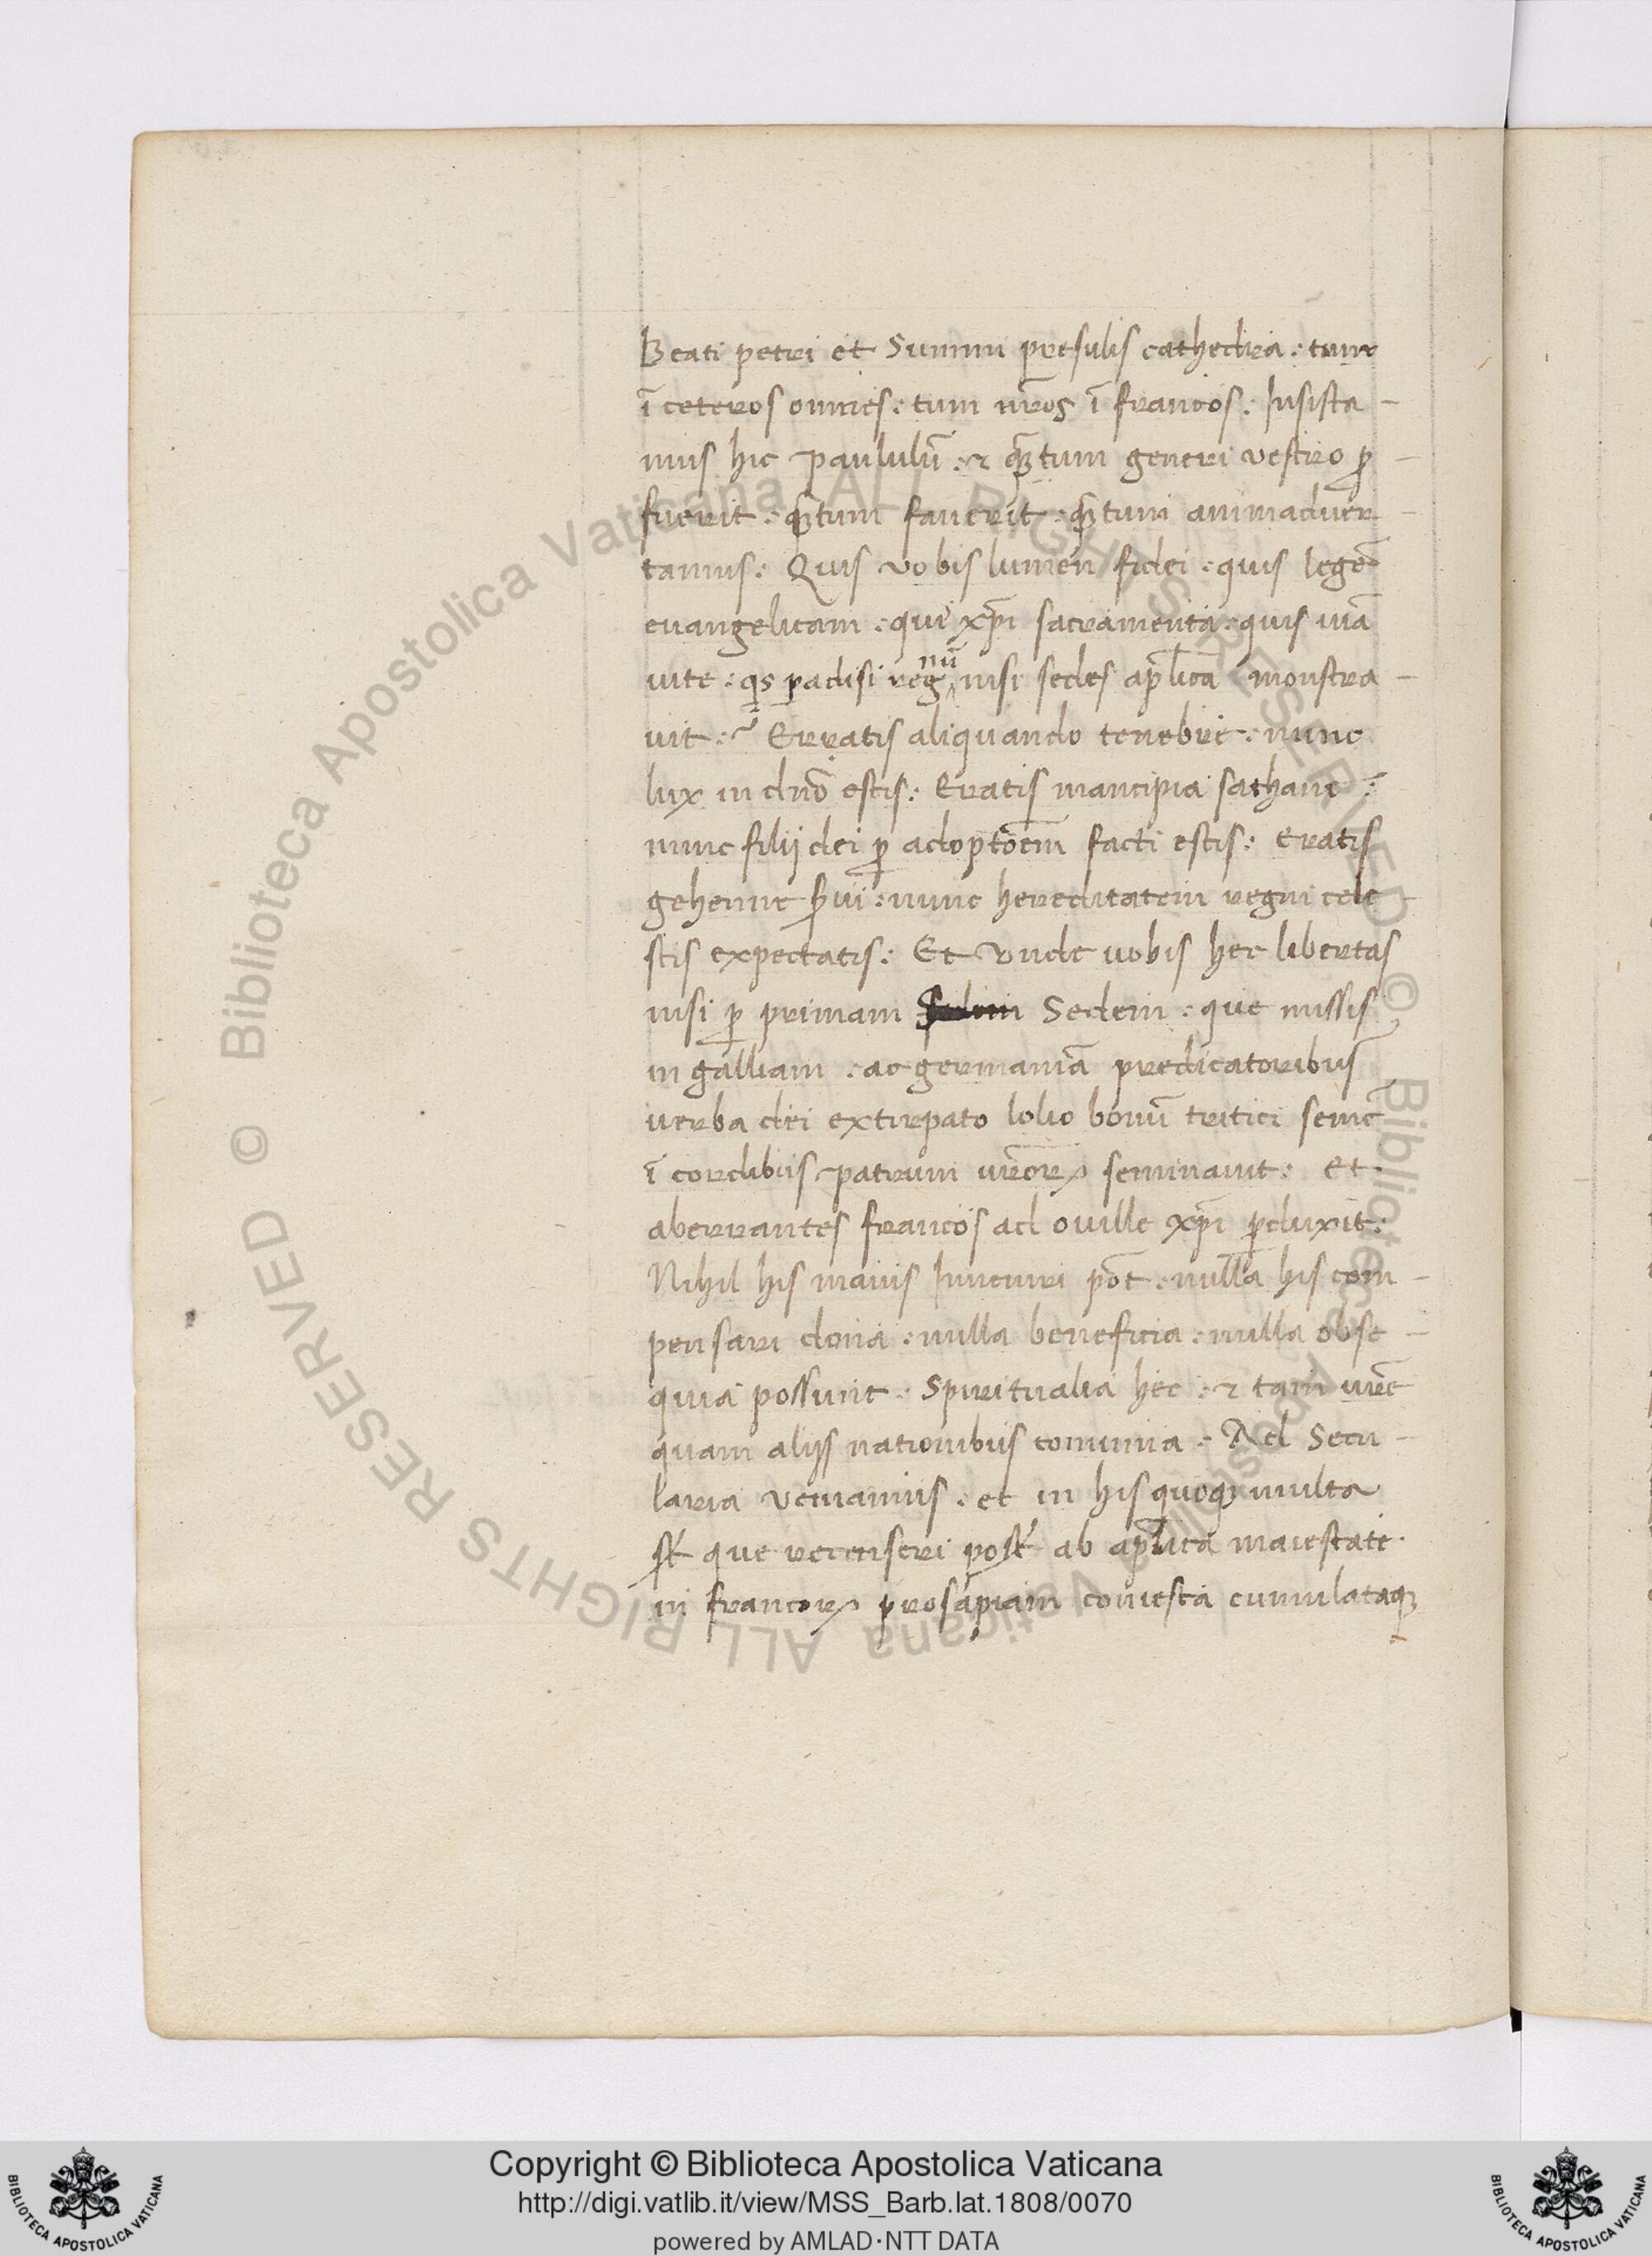 Beati petri et Summi presulis cathedra : tum
ī ceteros omnes : tum nr̄os ī francos : Insista -
mus hic paululū : ⁊ qꝫtum generi vestro ꝓ -
fuerit : qꝫtum fauerit : qꝫtum animaduer -
tamus : Quis vobis lumen fidei : quis legē
euangelicam : qui xp̄i sacramenta : quis uiā
uite : qs ꝑadisi regnū nisi sedes apl̄ica monstra -
uit : Erratis aliquando tenebre : nunc
lux in dn̄o estis : Eratis mancipia sathane :
nunc filij dei ꝑ adoptōem facti estis : Eratis
gehenne s̄ui : nunc hereditatem regni cele -
stis expectatis : Et vnde uobis hec libertas
nisi ꝑ primam Sedem : que missis
in galliam : ac germaniā predicatoribus
uerba dei extirpato lolio bonū tritici semē
ī cordibus patrum ur̄orꝝ seminauit : Et
aberrantes francos ad ouille xp̄i ꝑduxit :
Nihil his maius Inueniri pōt : nulla his com -
pensari dona : nulla beneficia : nulla obse -
quia possunt : Spiritualia hec : ⁊ tam ur̄e
quam alijs nationibus comunia : Ad Secu -
laria veniamus : et in his quoqꝫ multa
st̄ que recenseri post̄ ab apl̄ica maiestate
in francorꝝ prosapiam coniesta cumulataqꝫ
© Biblioteca Apostolica Vaticana ALL RIGHTS RESERVED © Biblioteca Apostolica Vaticana ALL RIGHTS RESERVED
Copyright © Biblioteca Apostolica Vaticana
http://digi.vatlib.it/view/MSS_Barb.lat.1808/0070
powered by AMLAD·NTT DATA
BIBLIOTECA APOSTOLICA VATICANA
BIBLIOTECA APOSTOLICA VATICANA